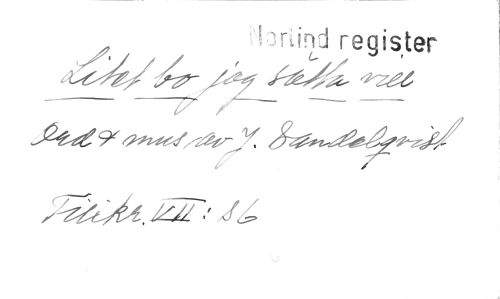 Norlind register
Litet bo jag sätta vill
Ord & mus av J. Sandelqvist
Filikr. VII: 86